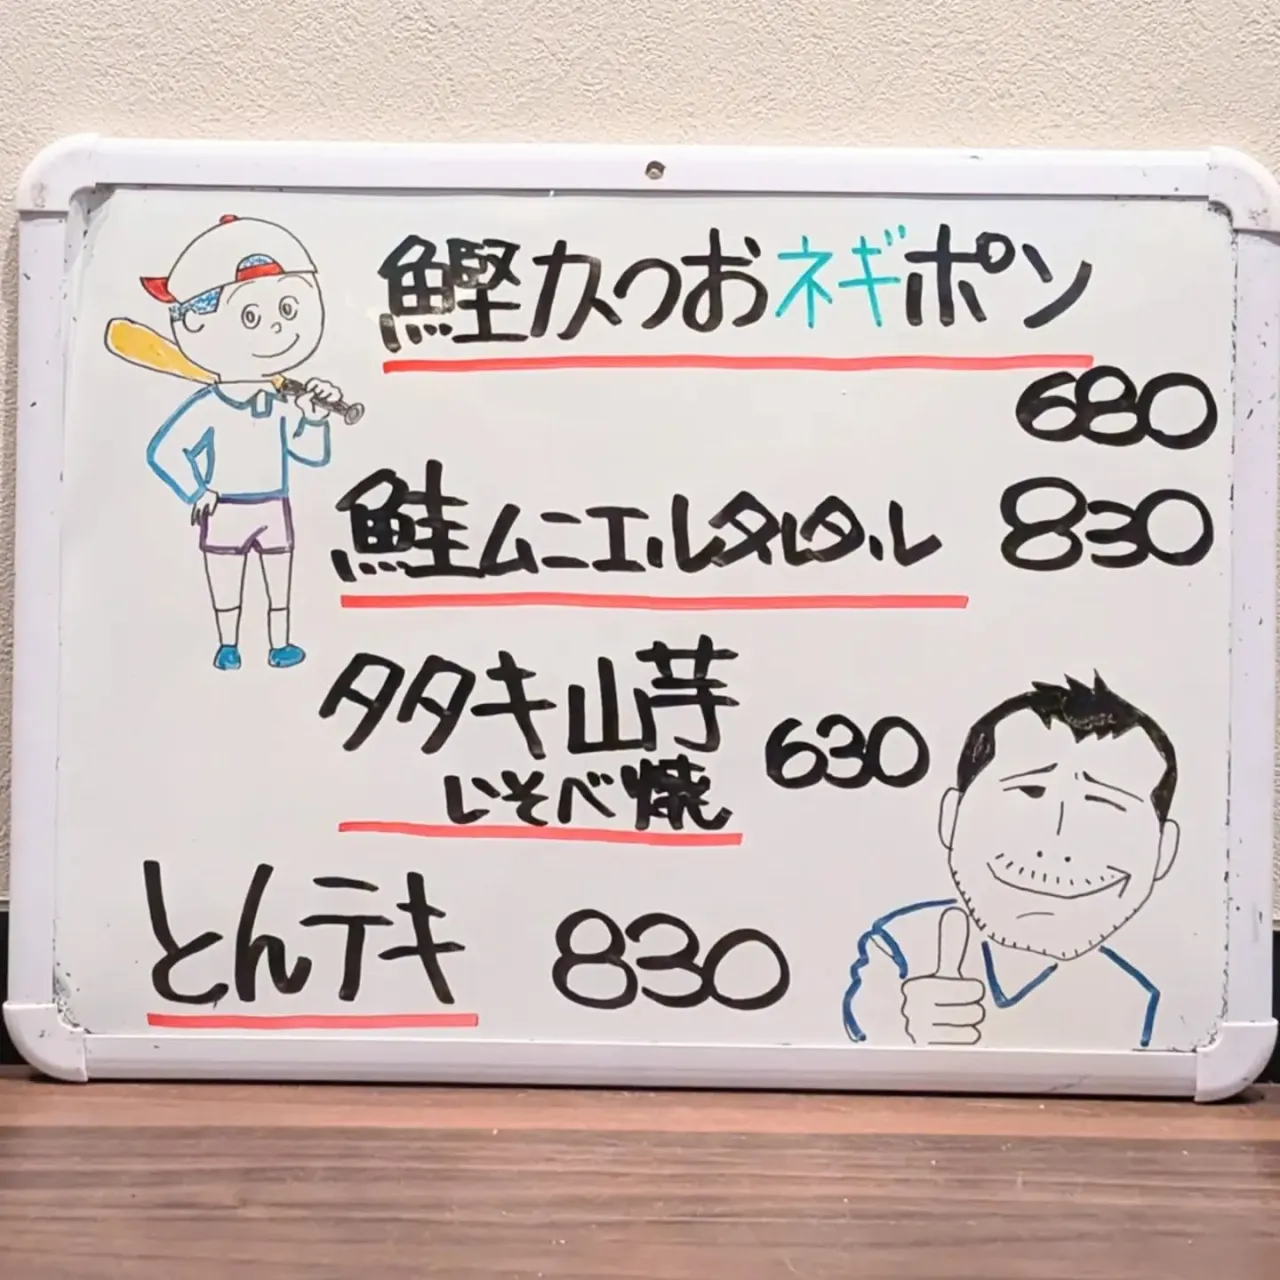 鰹カツおネギポン
680
鮭ムニエルタルタル 830
タタキ山芋 630
いそべ焼
とんテキ 830